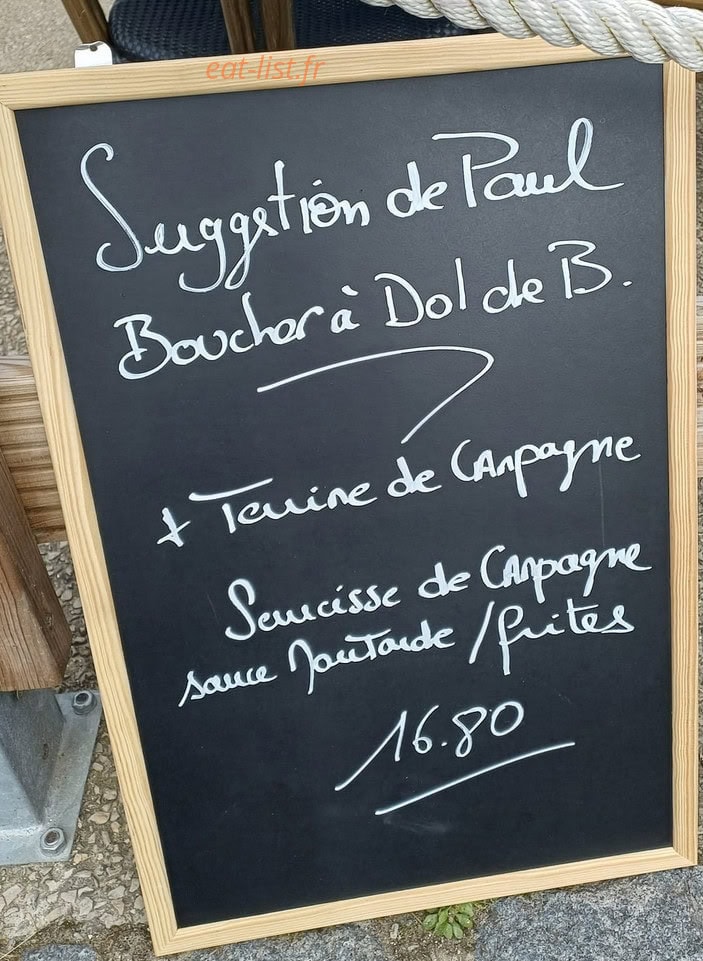 eat-list.fr
Suggstion de Paul
Boucher à Dol de B.
+ Terrine de Campagne
Saucisse de Campagne
sauce Moutarde / frites
16.80